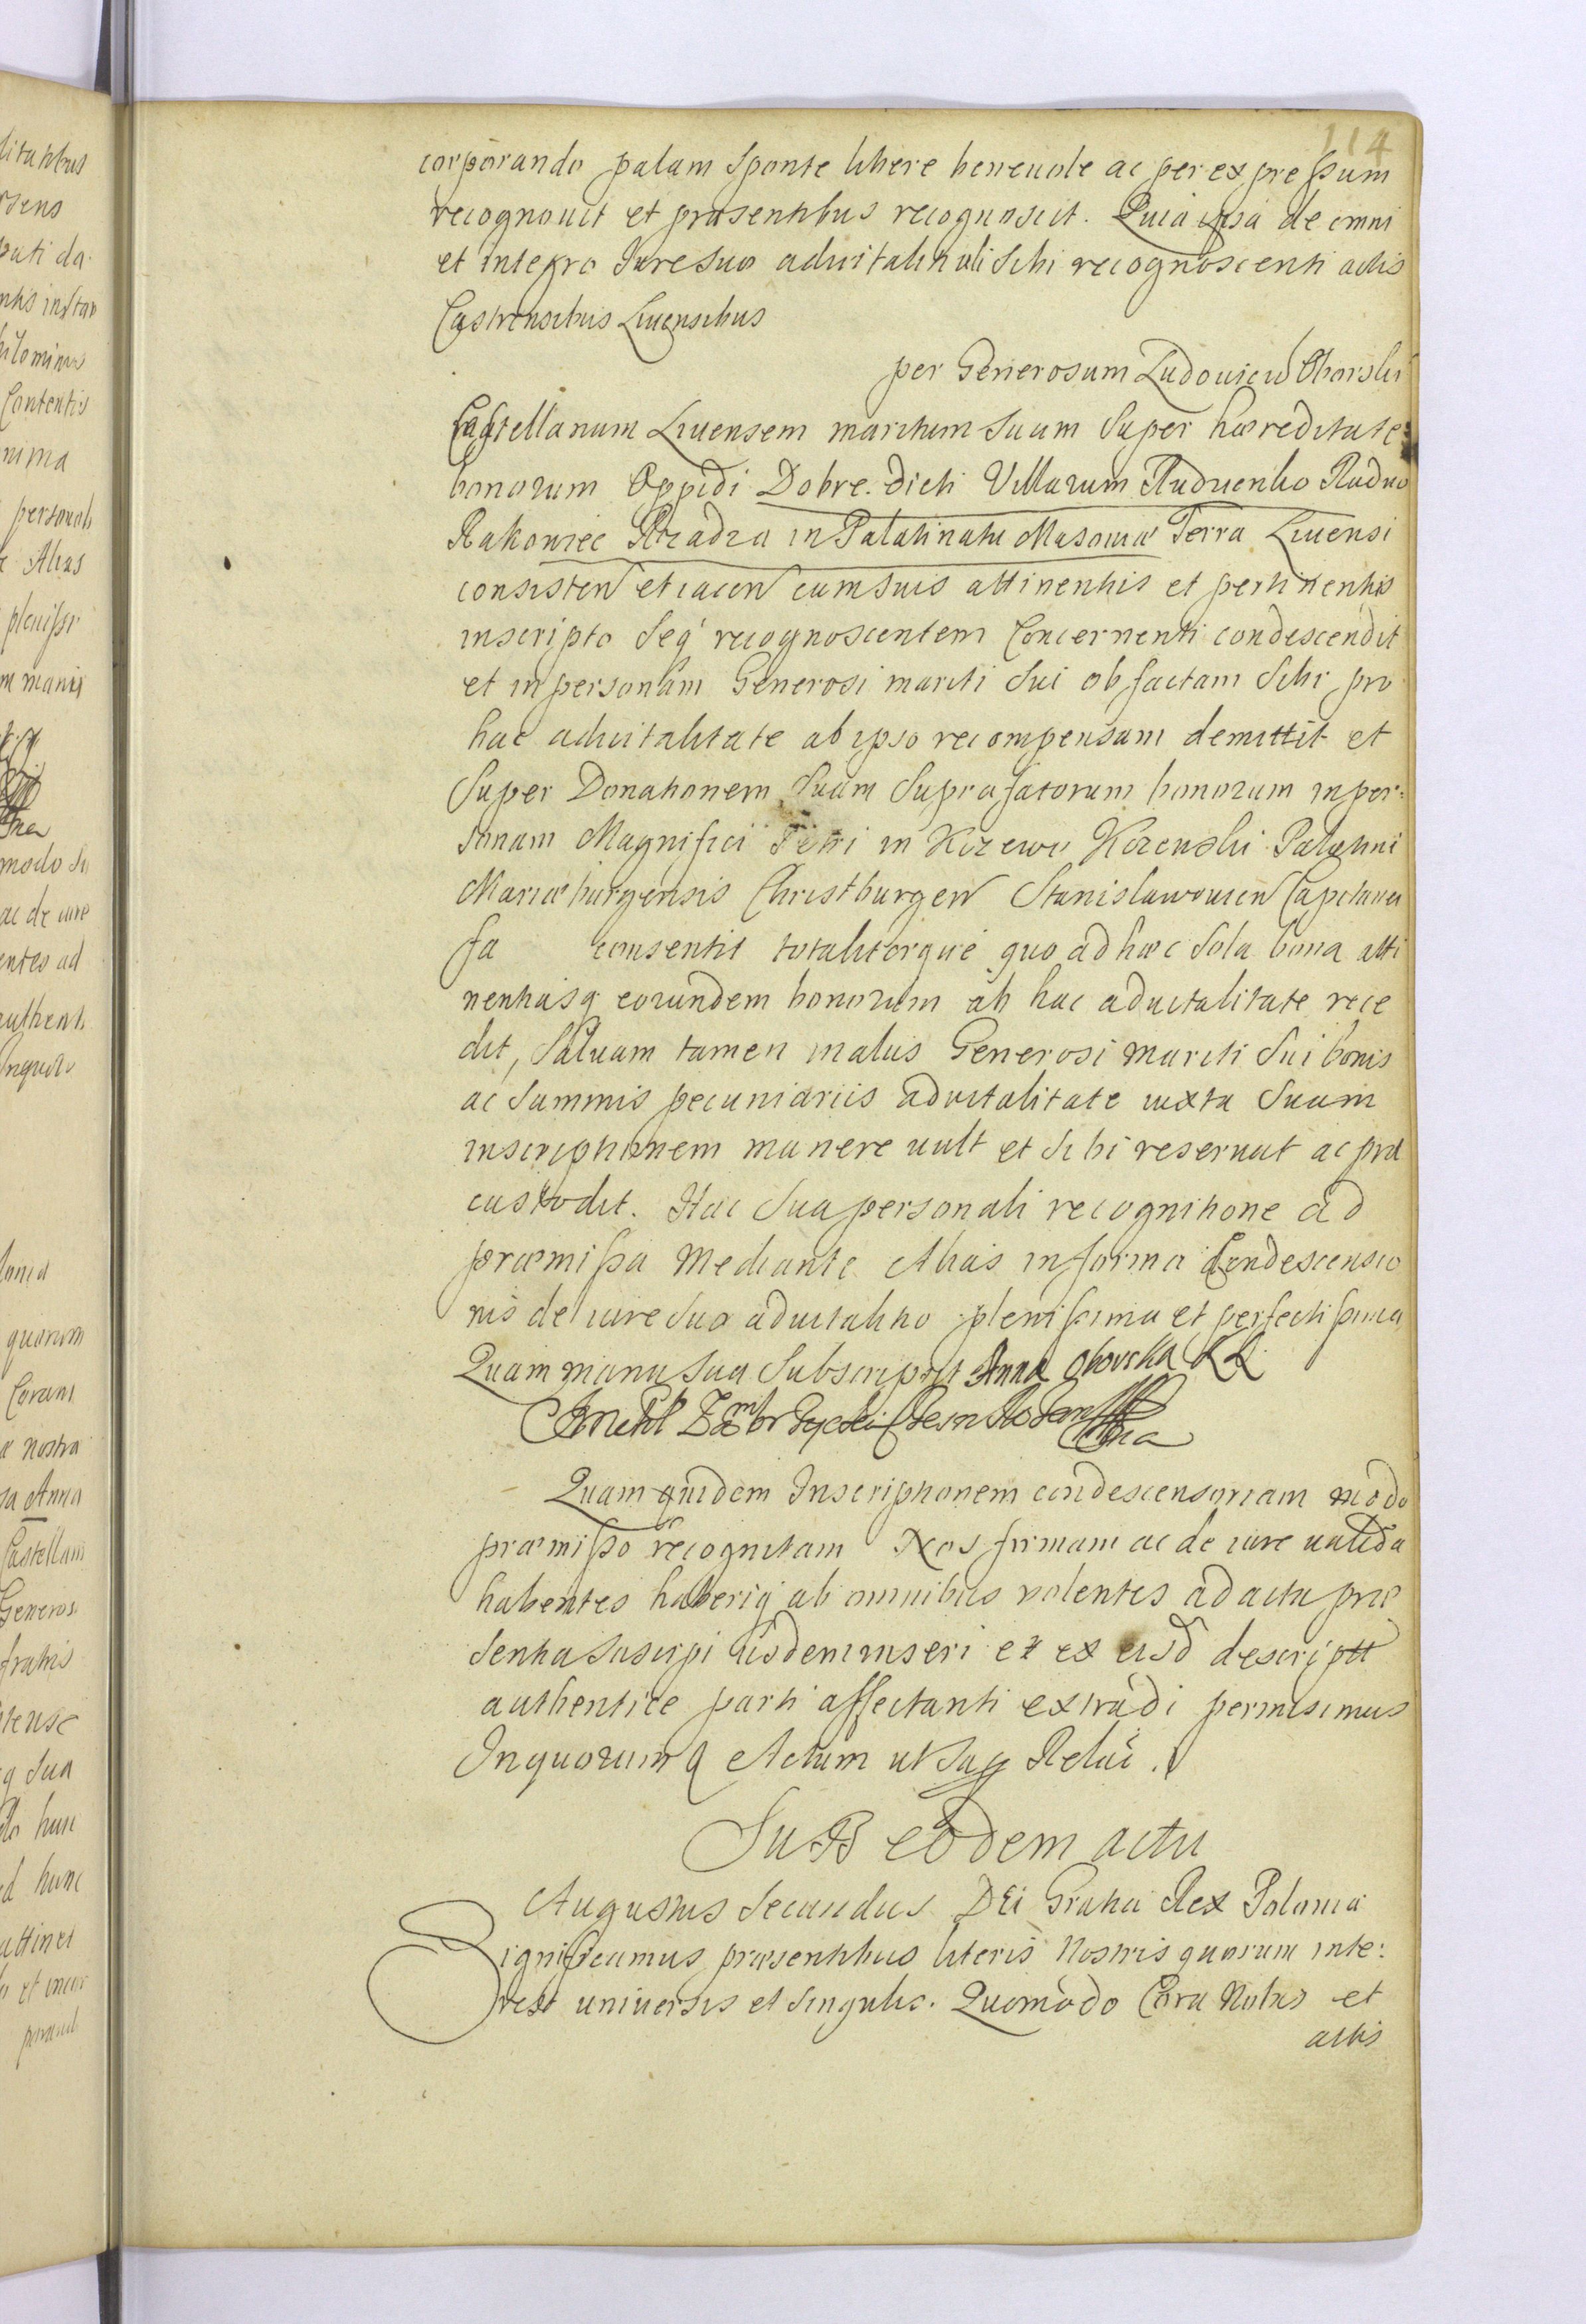 114
corporando palam sponte libere beneuole ac per expressum
recognouit et præsentibus recognoscit. Quia ipsa de omni
et integro Jure suo aduitalit uli sibi recognoscenti actis
Castrensibus Liuensibus
per Generosum Ludouicu Oborski
Castellanum Liuensem maritum suum super hæreditate:
bonorum Oppidi Dobre dicti Villarum Rudzienko Rudno
Rakowiec Rządza in Palatinatu Masouiæ Terra Liuensi
consisten et iacen cum suis attinentiis et pertinentiis
inscripto seq recognoscentem Concernenti condescendit
et in personam Generosi mariti sui ob factam sibi pro
hac aduitalitate ab ipso recompensam demittit et
super Donationem suam suprafatorum bonorum in per:
sonam Magnifici Petri in Kczewo Kczewski Palatini
Mariæburgensis Christburgen Stanislawouien Capitanei
fa consentit totaliterque quo ad hæc sola bona atti
nentiasq eorundem bonorum ab hac aduitalitate rece
dit, saluam tamen in aliis Generosi mariti sui bonis
ac summis pecuniariis aduitalitate iuxta suam
inscriptionem manere uult et sibi reseruat ac præ
custodit. Hac sua personali recognitione ad
præmissa mediante Alias in forma Condescensio
nis de iure suo aduitalitio plenissima et perfectissima
Quam manu sua subscripsit Anna Oborska KL
Quam quidem Inscriptionem condescensoriam modo
præmisso recognitam Nos firmam ac de iure ualida
habentes haberiq ab omnibus volentes ad acta præ
sentia suscipi iisdem inseri et ex eisd descriptt
authentice parti affectanti extradi permisimus
In quorum q Actum ut sup Relaĉ.
Sub eodem actu
Augustus Secundus Dei Gratia Rex Poloniæ
Significamus præsentibus literis Nostris quorum inte:
rest uniuersis et singulis. Quomodo Cora Nobis et
actis